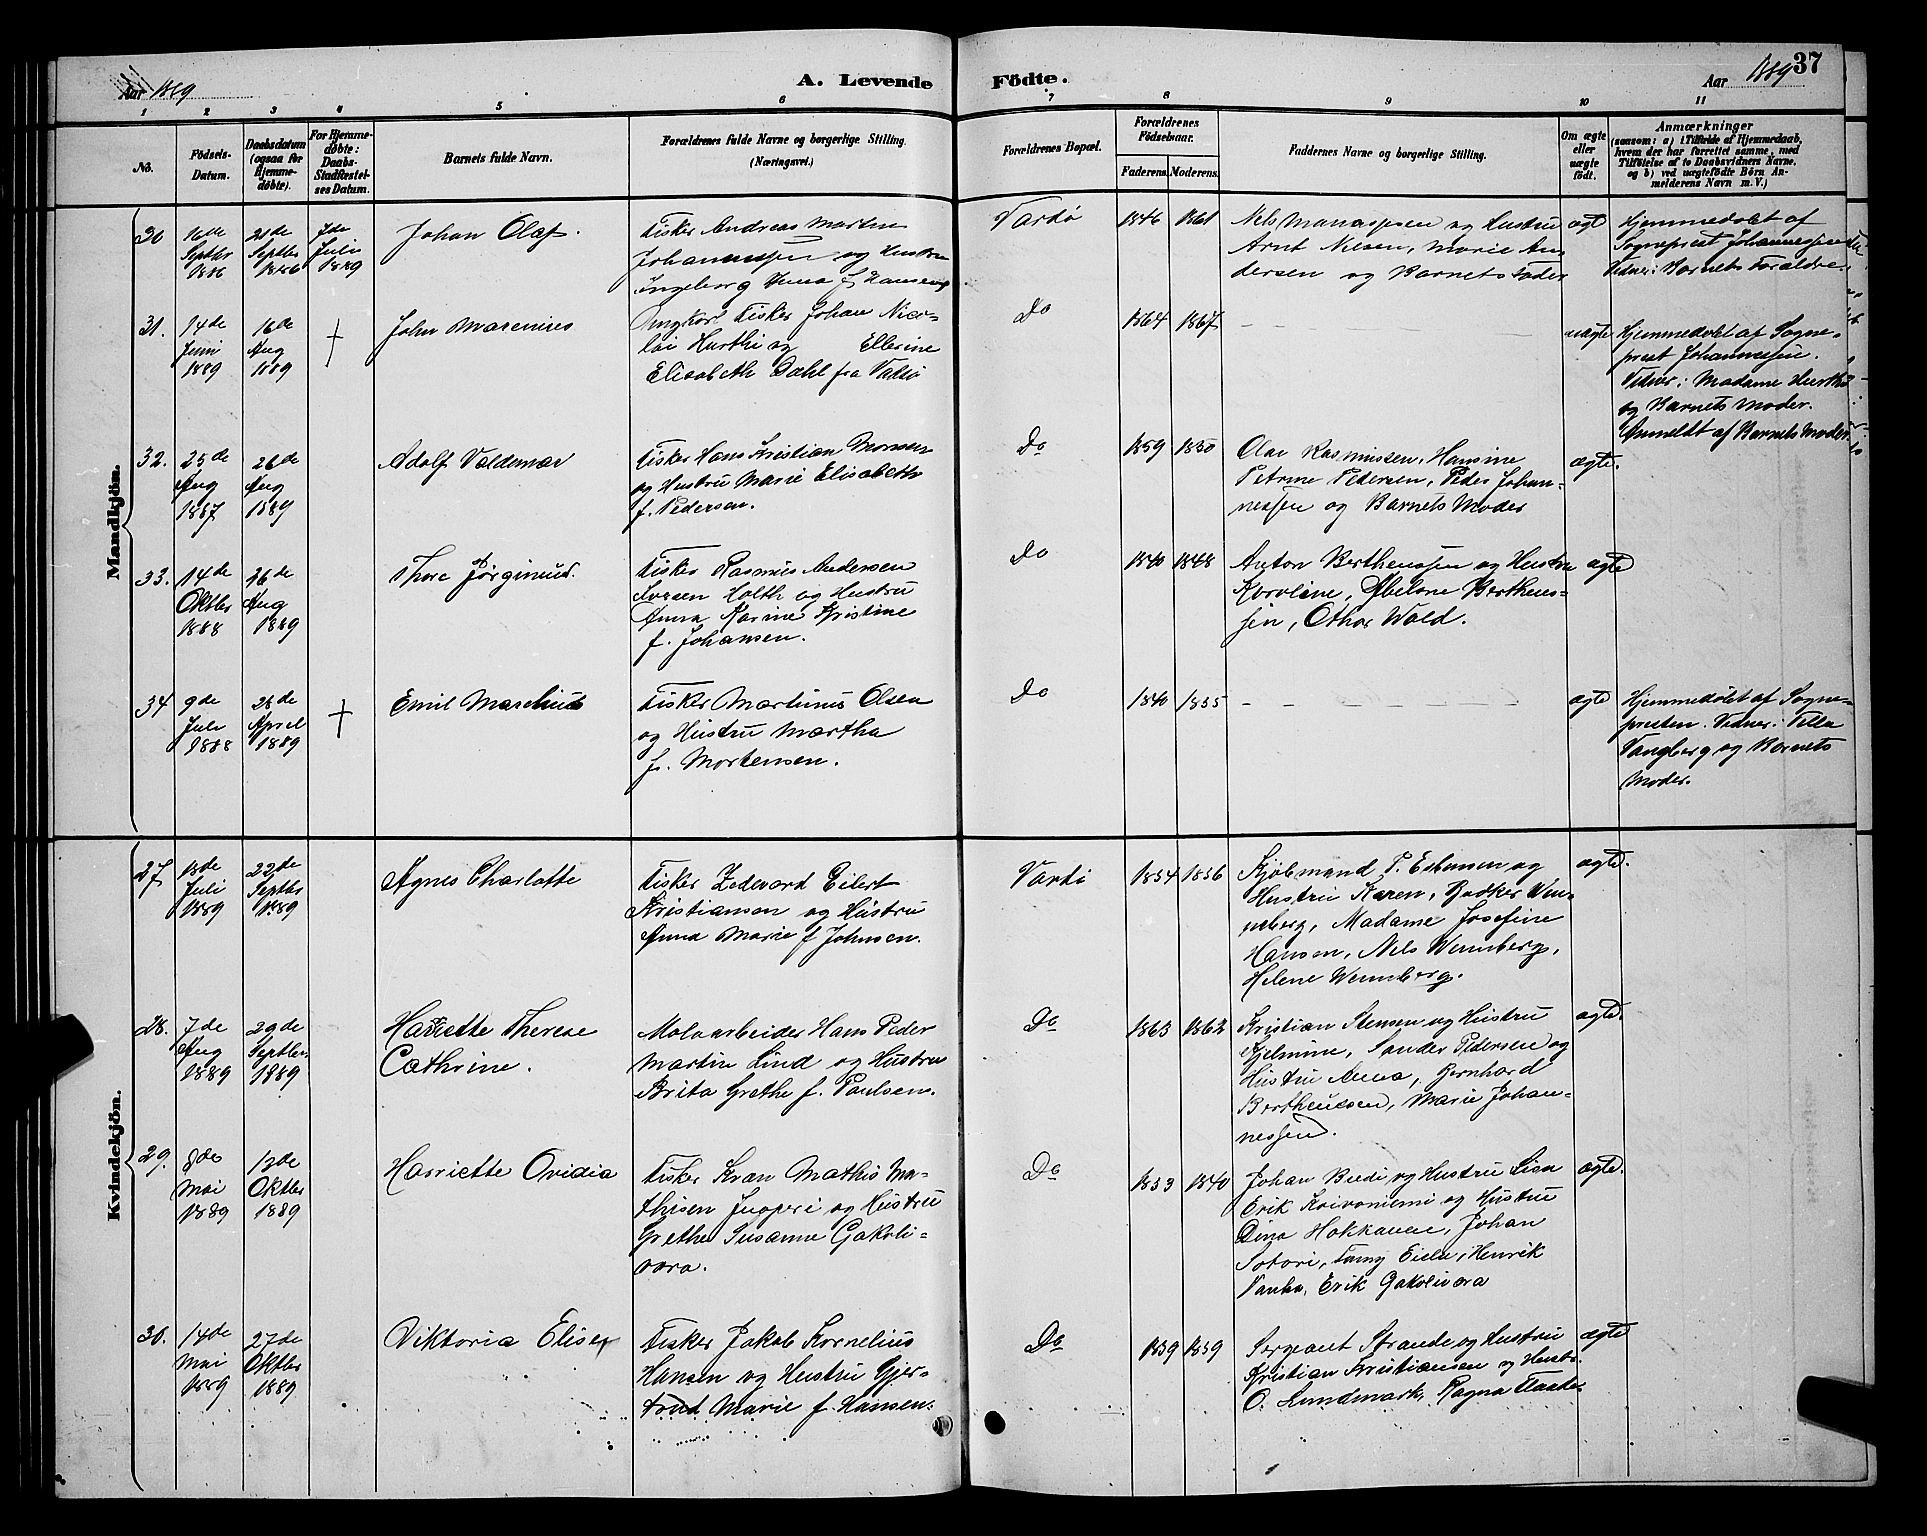 Aar 1889
A. Levende Födte.
Aar 1889 37
1 2 3 4 5 6 7 8 9 10 11
No.
Födsels-Datum.
Daabsdatum (ogsaa for Hjemme-döbte).
For Hjemme-döbte: Daabs-Stadfæstel-ses Datum.
Barnets fulde Navn.
Forældrenes fulde Navne og borgerlige Stilling. (Næringsvei.)
Forældrenes Bopæl.
Forældrenes Födselsaar.
Faderens. Moderens.
Faddernes Navne og borgerlige Stilling.
Om ægte eller uægte födt.
Anmærkninger
(saasom: a) i Tilfælde af Hjemmedaab, hvem der har forrettet samme, med Tilföielse af to Daabsvidners Navne, og b) ved uægtefödte Börn Anmelderens Navn m. V.)
Mandkjön.
30 16de Septbr 1886 21de Septbr 1886 7de Juli 1889
Johan Olaf.
Fisker Andreas Martin
Johannessen og Hustru
Ingeborg Anna f. Hansen
Vardø 1846 1861
Nels Manaspsen og Hustru
Arnt Nilsen, Marie An-
dersen og Barnets Fader
ægte
Hjemmedøbt af
Sogneprest Johannessen
Vidner: Barnets Forældre.
31. 14de Juni 1889 16de Aug 1889 †
John Marenius
Ungkarl Fisker Johan Nico-
lai Hurthi og Ellerine
Elisabeth Dahl fra Vadsø
Do 1864 1867 – – –
uægte
Hjemmedøbt af Sogne-
prest Johannessen.
Vidner: Madame Hurthi
og Barnets Moder.
Anmeldt af Barnets Moder.
32. 25de Aug 1887 26de Aug 1889
Adolf Valdemar
Fisker Hans Kristian Monsen
og Hustru Marie Elisabeth
f. Pedersen.
Do 1859 1850
Olar Rasmussen, Hansine
Petrine Pedersen, Peder Johan-
nessen og Barnets Moder
ægte.
33. 14de Oktbr 1888 26de Aug 1889
Thore Jørginius.
Fisker Rasmus Andersen
Iversen Holth og Hustru
Anna Karine Kristine
f. Johansen.
Do 1840 1848
Anton Berthenssen og Hustru
Karoline, Abelone Berthens-
sen, Othar Wald.
ægte
34 9de Juli 1888 28de April 1889 †
Emil Marelius
Fisker Martinus Olsen
og Hustru Martha
f. Mortensen.
Do 1840 1855 – – –
ægte
Hjemmedøbt af Sogne-
presten. Vidner: Villa
Vangberg og Barnets
Moder.
Kvindekjön.
27 13de Juli 1889 22de Septbr 1889
Agnes Charlotte
Fisker Zedevard Eilert
Kristiansen og Hustru
Anna Marie f Johnsen.
Vardø 1854 1856
Kjøbmand P. Esbensen og
Hustru Karen, Bødker Wen-
neberg, Madame Josefine
Hansen, Nils Wennberg,
Helene Wennberg.
ægte.
28. 7de Aug 1889 29de Septbr. 1889
Harriette Therese
Cathrine.
Moloarbeider Hans Peder
Martin Lind og Hustru
Brita Grethe f. Paulsen.
Do 1863 1862
Kristian Stensen og Hustru
Hjelmine, Sander Pedersen og
Hustru Anna, Bernhard
Bertheussen, Marie Johan-
nessen.
ægte.
29. 8de Mai 1889 13de Oktbr 1889
Harriette Ovidia
Fisker Kvæn Mathis Ma-
thisen Juoperi og Hustru
Grethe Susanne Gakoli-
vara.
Do 1853 1840
Johan Budi og Hustru Lisa
Erik Koivoniemi og Hustru
Dina Hakkanen, Johan
Sotari, Fanny Eielu, Henrik
Vanha, Erik Gakolivara
ægte.
30. 14de Mai 1889 27de Oktbr 1889
Viktoria Elise
Fisker Jakob Kornelius
Hansen og Hustru Gjer-
trud Marie f. Hansen.
Do 1859 1859
Sergeant Strande og Hustru
Kristian Kristiansen og Hustr.
O. Lundmark, Ragna Flaate
ægte